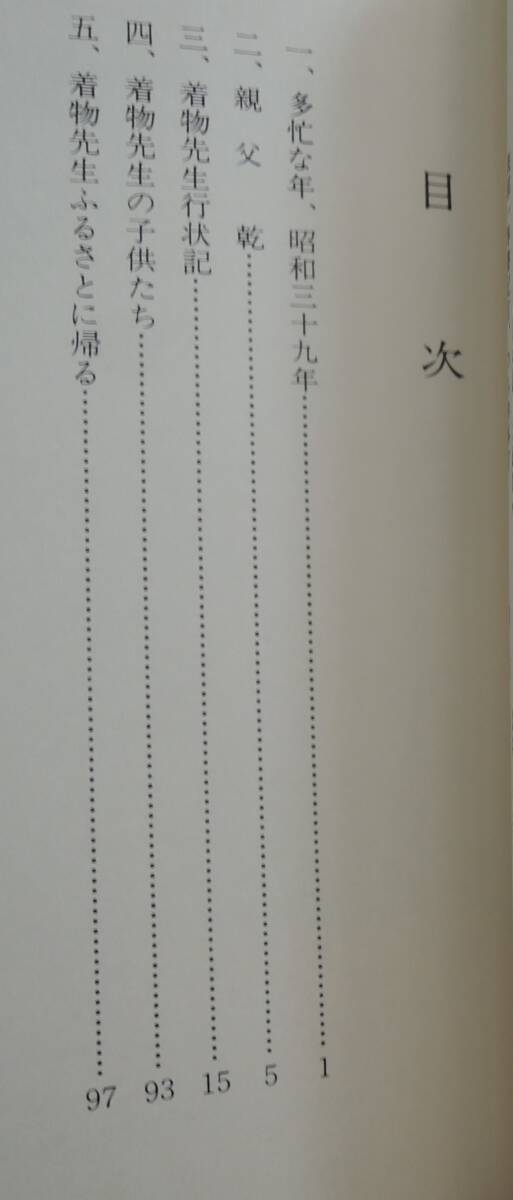 目次
一、多忙な年、昭和三十九年……………………1
二、親父 乾……………………5
三、着物先生行状記……………………15
四、着物先生の子供たち……………………93
五、着物先生ふるさとに帰る……………………97